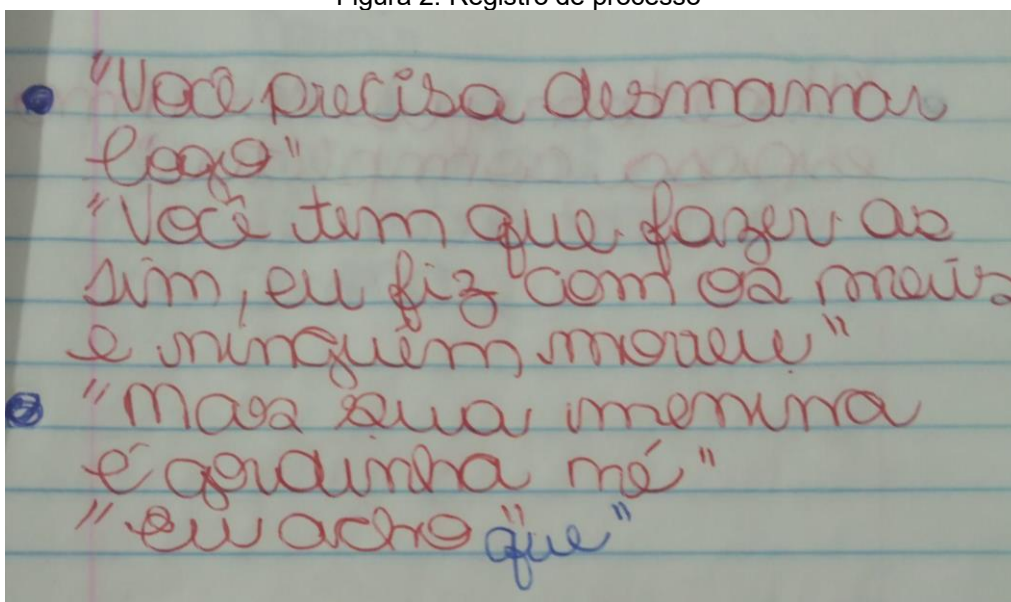 Figura 2. Registro de processo
"Você precisa desmamar
logo"
"Você tem que fazer as
sim, eu fiz com os meus
e ninguém morreu"
"Mas sua menina
é gordinha né"
"eu acho" que"